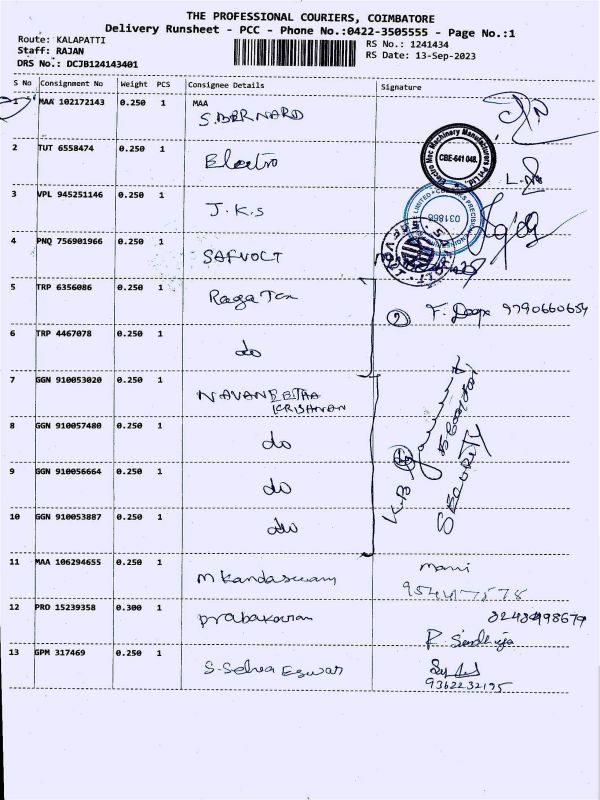 THE PROFESSIONAL COURIERS, COIMBATORE
Delivery Runsheet - PCC - Phone No.:0422-3505555 - Page No.:1
Route: KALAPATTI
Staff: RAJAN
DRS No.: DCJB124143401
RS No.: 1241434
RS Date: 13-Sep-2023
S No Consignment No Weight PCS Consignee Details Signature
1 MAA 102172143 0.250 1 MAA
S.BERNARD
2 TUT 6558474 0.250 1 Electro
Electro Mec Machinery Manufacturers Pvt Ltd.
CBE-641 048.
3 VPL 945251146 0.250 1 J.K.S
031866
4 PNQ 756901966 0.250 1 SAFVOLT
5 TRP 6356086 0.250 1 Raga Tex
2 F. 9790660654
6 TRP 4467078 0.250 1 do
7 GGN 910053020 0.250 1 NAVANEETHA
KRISHNAN
8 GGN 910057480 0.250 1 do
9 GGN 910056664 0.250 1 do
K.B
SECURITY
10 GGN 910053887 0.250 1 do
11 MAA 106294655 0.250 1 M Kandaswam
Mani
12 PRO 15239358 0.300 1 Prabakaran
13 GPM 317469 0.250 1 S.Selva Eswar
9362232195